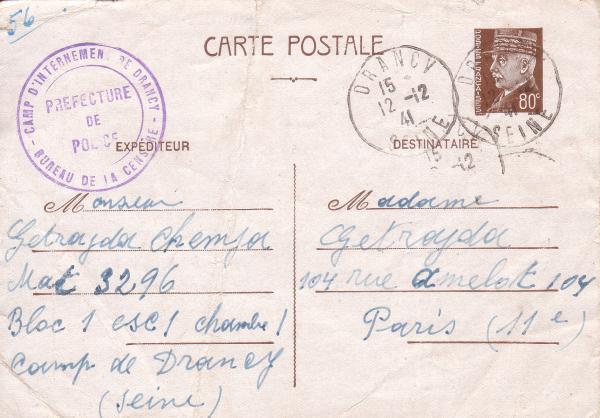 56
CARTE POSTALE
CAMP D'INTERNEMENT DE DRANCY
PREFECTURE
DE
POLICE
BUREAU DE LA CENSURE
DRANCY
15
12 -12
41
SEINE
80c
SEINE
15
12
EXPÉDITEUR
Monsieur
Getrajda Chemja
Mat 3296
Bloc 1 esc 1 chambre 1
Camp de Drancy
(Seine)
DESTINATAIRE
Madame
Getrajda
104 rue amelot 104
Paris (11e)